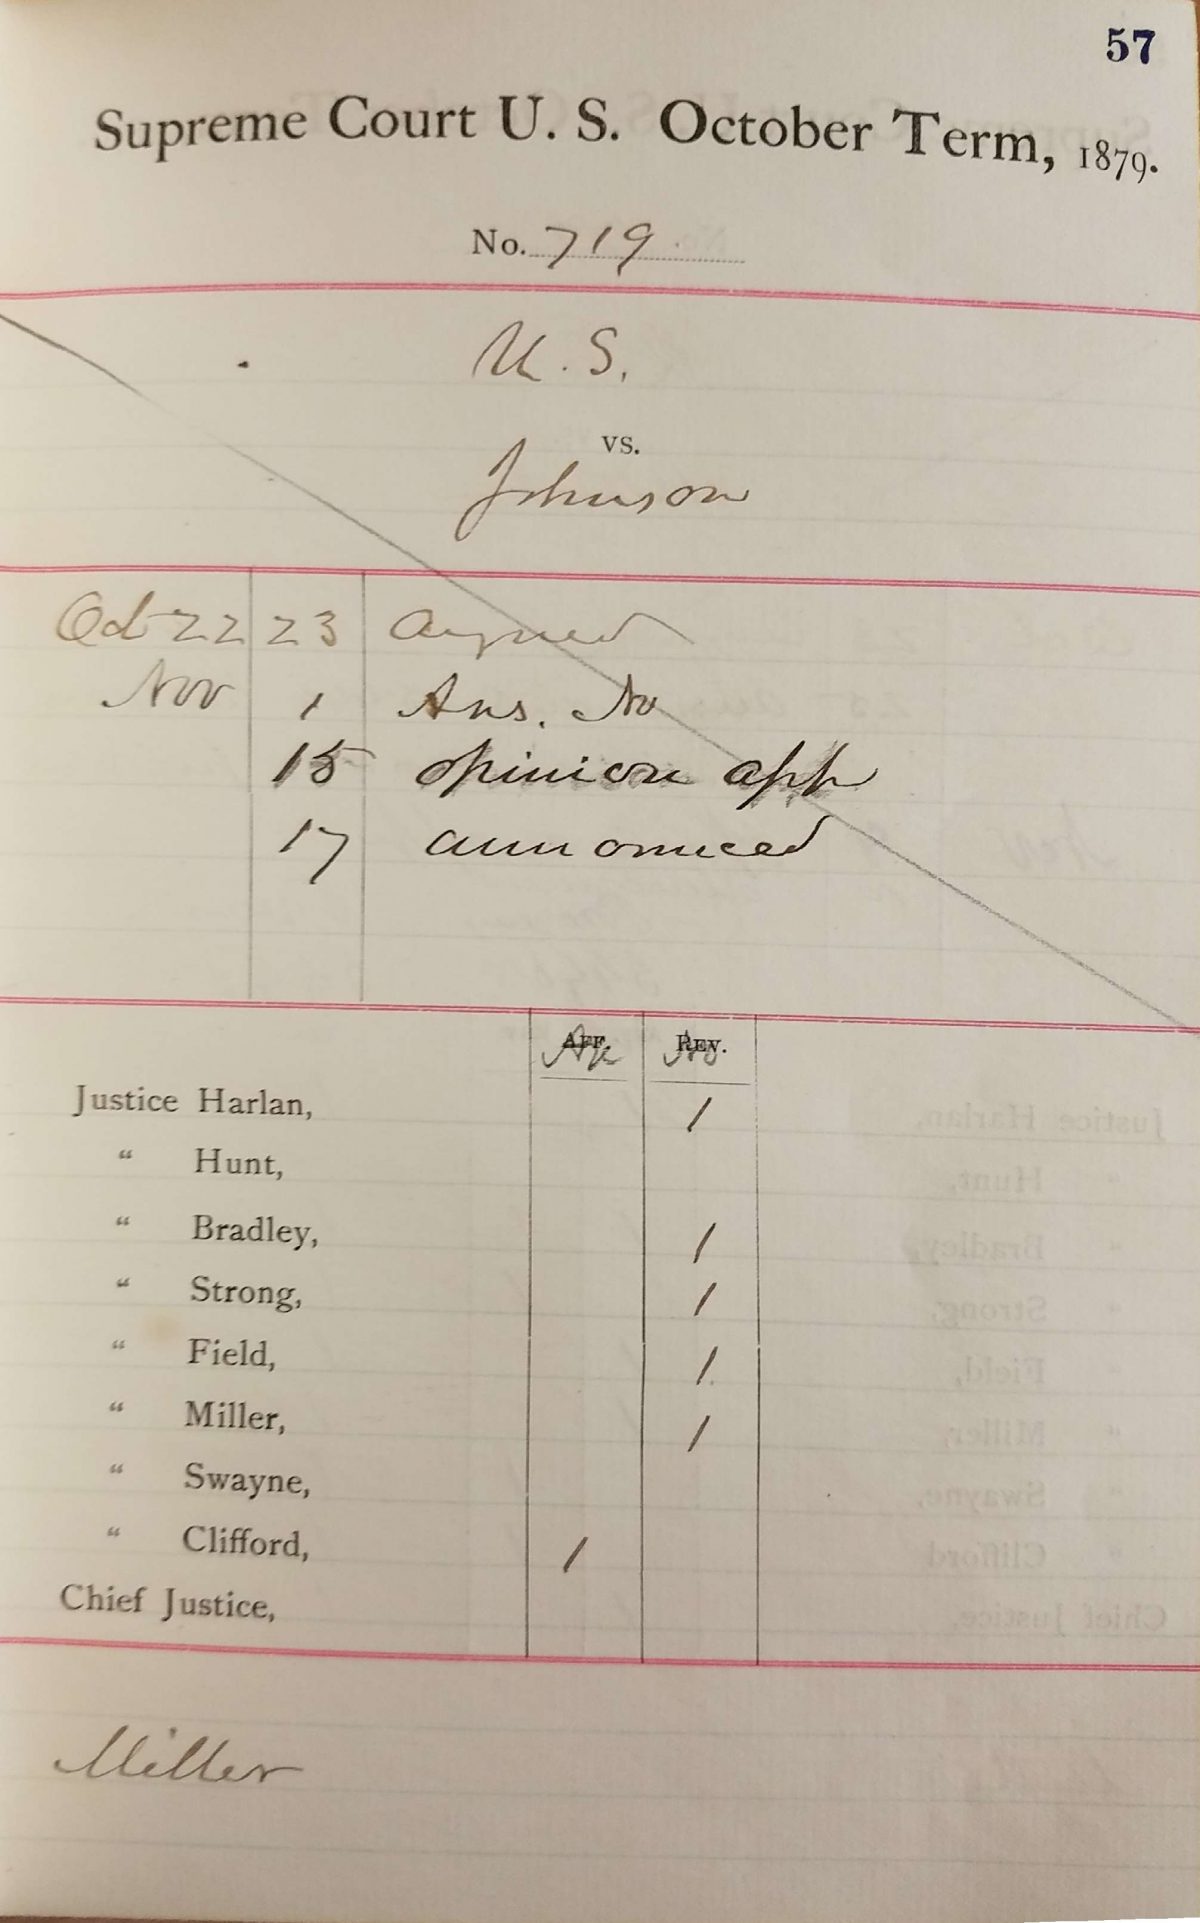 57
Supreme Court U. S. October Term, 1879.
No. 719
U. S.
vs.
Johnson
Oct 22 23 argued
Nov 1 Ans. No
15 opinion app
17 announced
AFF. REV.
No
Justice Harlan, /
" Hunt,
" Bradley, /
" Strong, /
" Field, /
" Miller, /
" Swayne,
" Clifford, /
Chief Justice,
Miller